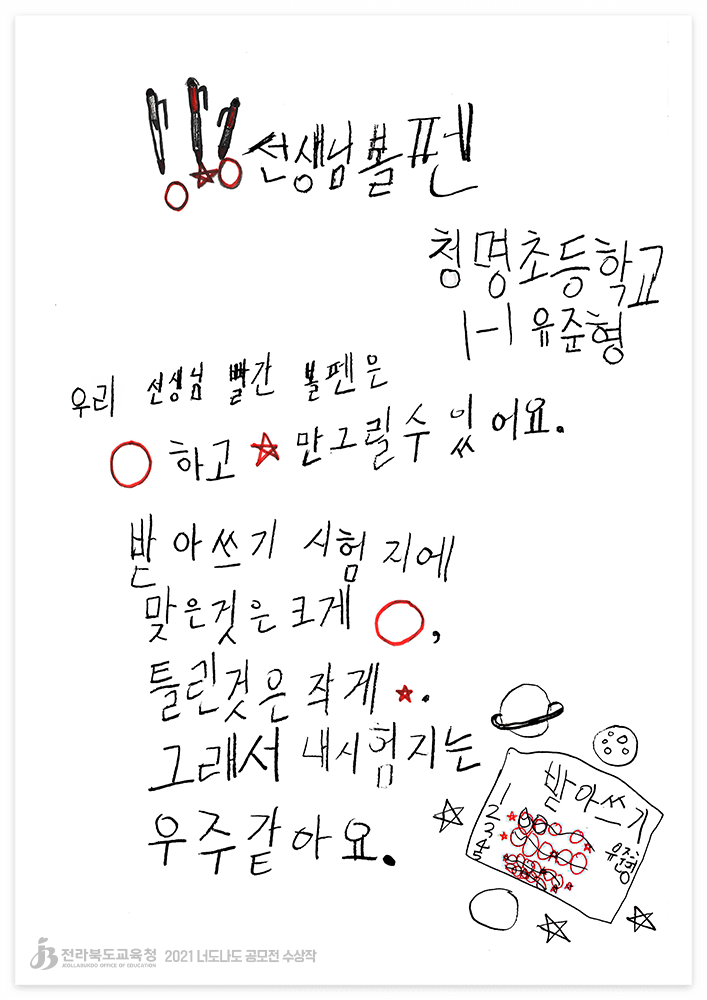 선생님볼펜
청명초등학교
1-1 유준형
우리 선생님 빨간 볼펜은
하고 만그릴수있어요.
받아쓰기 시험지에
맞은것은크게 ,
틀린것은작게 .
그래서 내시험지는
우주같아요.
받아쓰기
유준형
1
2
3
4
5
전라북도교육청 2021 너도나도 공모전 수상작
JEOLLABUKDO OFFICE OF EDUCATION